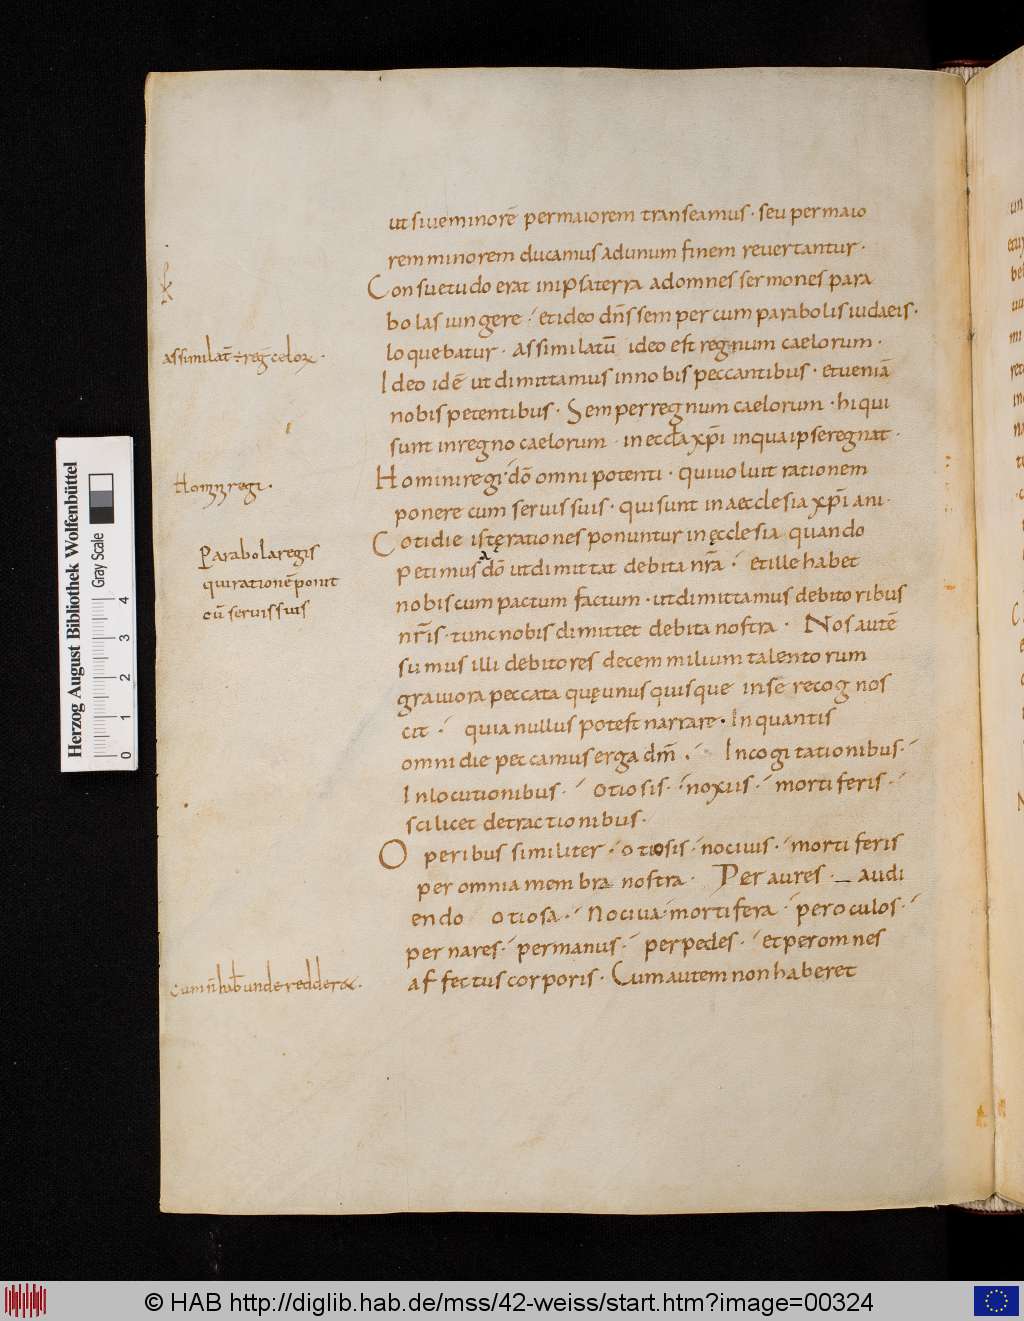 ut siue minorē per maiorem transeamus · seu per maio
rem minorem ducamus ad unum finem reuertantur ·
Consuetudo erat in ipsa terra ad omnes sermones para
bolas iungere · et ideo dn̄s semper cum parabolis iudaeis ·
loquebatur · Assimilatū ideo est regnum caelorum ·
Ideo idē ut dimittamus in nobis peccantibus · et ueniā
nobis petentibus · Semper regnum caelorum · hi qui
sunt in regno caelorum · in eccla xp̄i in qua ipse regnat ·
Homini regi · dō omnipotenti · qui uoluit rationem
ponere cum seruis suis · qui sunt in aecclesia xp̄i ani ·
Cotidie istę rationes ponuntur in ęcclesia quando
petimus dō ut dimittat debita nr̄a · et ille habet
nobiscum pactum factum · ut dimittamus debitoribus
nr̄is · tunc nobis dimittet debita nostra · Nos autē
sumus illi debitores decem milium talentorum
grauiora peccata quę unusquisque in se recognos
cit · quia nullus potest narrare · In quantis
omni die peccamus erga dm̄ · In cogitationibus ·
In locutionibus · otiosis · noxiis · mortiferis ·
scilicet detractionibus ·
Operibus similiter · otiosis · nociuis · mortiferis
per omnia membra nostra · Per aures · audi
endo otiosa · Nociua · mortifera · per oculos ·
per nares · per manus · per pedes · et per omnes
affectus corporis · Cum autem non haberet
assimilat̄ ÷ reg̅ celoꝝ ·
Homini regi ·
Parabola regis
qui rationē ponit
cū seruis suis
cum n̄ hab& unde redder& ·
Herzog August Bibliothek Wolfenbüttel
Gray Scale
0 1 2 3 4
© HAB http://diglib.hab.de/mss/42-weiss/start.htm?image=00324